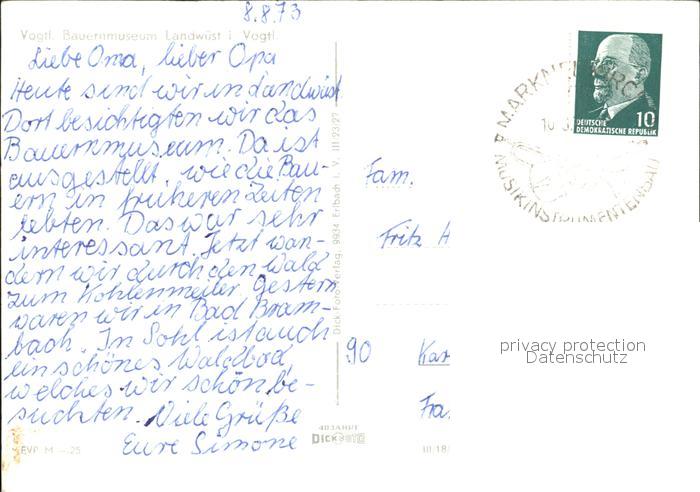 8.8.73
Vogtl. Bauernmuseum Landwüst i. Vogtl.
Liebe Oma, lieber Opa
Heute sind wir in Landwüst
Dort besichtigten wir das
Bauernmuseum. Da ist
ausgestellt, wie die Bau-
ern in früheren Zeiten
lebten. Das war sehr
interessant. Jetzt wan-
dern wir durch den Wald
zum Kohlenmeiler. Gestern
waren wir in Bad Bram-
bach. In Sohl ist auch
ein schönes Waldbad
welches wir schön be-
suchten. Viele Grüße
Eure Simone
EVP M -.25
Dick Foto-Verlag, 9934 Erlbach i. V.
40 JAHRE
DICK FOTO
III/18/
MARKNEUKIRCH
MUSIKINSTRUMENTENBAU
10
DEUTSCHE
DEMOKRATISCHE REPUBLIK
Fam.
Fritz H
90 Kar
Fra
privacy protection
Datenschutz